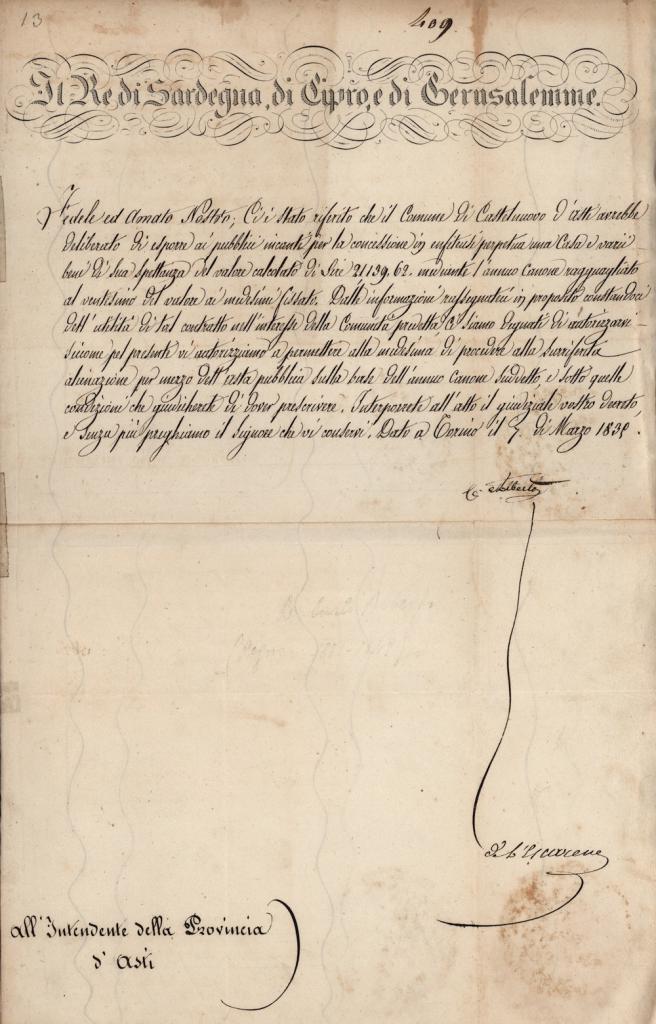 13
409
Il Re di Sardegna, di Cipro, e di Gerusalemme.
Fedele ed Amato Nostro; Ci è stato riferito che il Comune di Castelnuovo d'Asti avrebbe
deliberato di esporre ai pubblici incanti per la concessione in enfiteusi perpetua una Casa e varii
beni di sua spettanza del valore calcolato di Lire 21139,62. mediante l'annuo Canone ragguagliato
al ventesimo del valore ai medesimi fissato. Dalle informazioni rassegnateci in proposito constandoci
dell'utilità di tal contratto nell'interesse della Comunità predetta Ci siamo degnati di autorizzarvi
siccome pel presente vi autorizziamo a permettere alla medesima di procedere alla surriferita
alienazione per mezzo dell'asta pubblica sulla base dell'annuo Canone suddetto, e sotto quelle
condizioni che giudicherete di dover prescrivere. Interporrete all'atto il giudiziale vostro decreto,
e senza più preghiamo il Signore che vi conservi. Dato a Torino il 7. di Marzo
C. Alberto
De L'Escarene
All'Intendente della Provincia
d'Asti